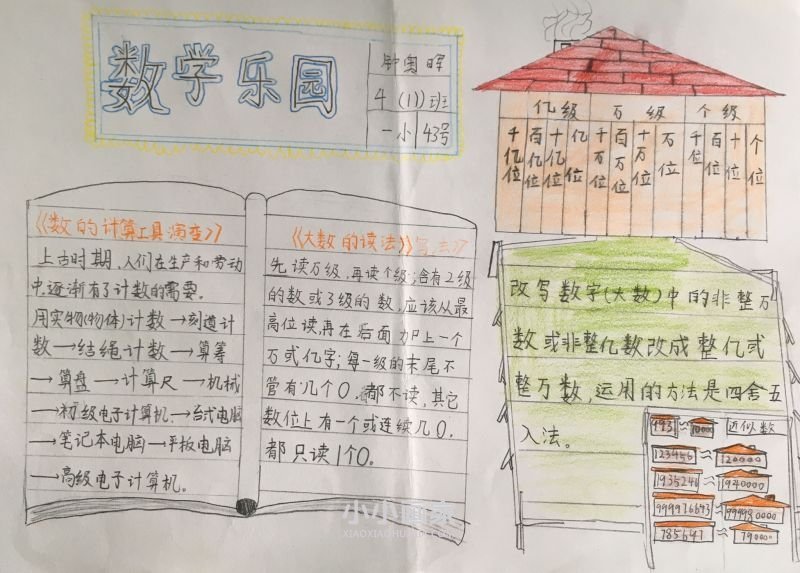 数学乐园
钟奥晖
4(1)班
一小 43号
亿级 万级 个级
千亿位 百亿位 十亿位 亿位 千万位 百万位 十万位 万位 千位 百位 十位 个位
《数的计算工具演变》
上古时期,人们在生产和劳动
中逐渐有了计数的需要。
用实物(物体)计数→刻道计
数→结绳计数→算筹
→算盘→计算尺→机械
→初级电子计算机→台式电脑
→笔记本电脑→平板电脑
→高级电子计算机。
《大数的读法》写法》
先读万级,再读个级;含有2级
的数或3级的数,应该从最
高位读,再在后面加上一个
万或亿字;每一级的末尾不
管有几个0,都不读,其它
数位上有一个或连续几0,
都只读1个0。
改写数字(大数)中的非整万
数或非整亿数改成整亿或
整万数,运用的方法是四舍五
入法。
近似数
123456≈120000
1935246≈1940000
785647≈790000
小小画家
XIAOXIAOHUAJIA.COM